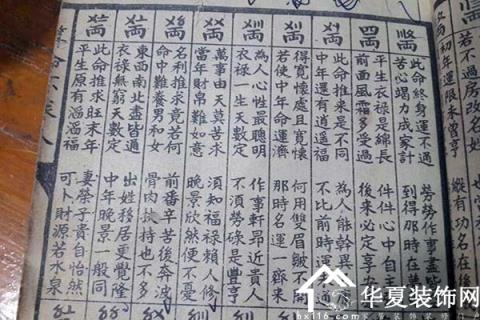 若不過房改名姓
縱有功名在
初年運限未曾亨
此命終身運不通
勞勞作事盡
苦心竭力成家計
到得那時在
平生衣祿是綿長
件件心中自
前面風霜多受過
後來必定享
此命推来是不同
為人能幹異
中年還有逍遥福
不比前時運
得寬懷處且寬懷
何用雙眉皺不開
若使中年命運濟
那時名運一齊来
為人心性最聰明
作事軒昂近貴人
衣祿一生天數定
不須勞碌是豐亨
萬事由天莫苦求
須知福祿賴人修
當年財帛難如意
晚景欣然便不憂
名利推求竟若何
前番辛苦後奔波
命中難養男和女
骨肉扶持也不多
東西南北盡皆通
出姓移居更覺隆
衣祿無窮天數定
中年晚景一般同
此命推求旺末年
妻榮子貴自怡然
平生原有滔滔福
可卜財源若水泉
华夏装饰网